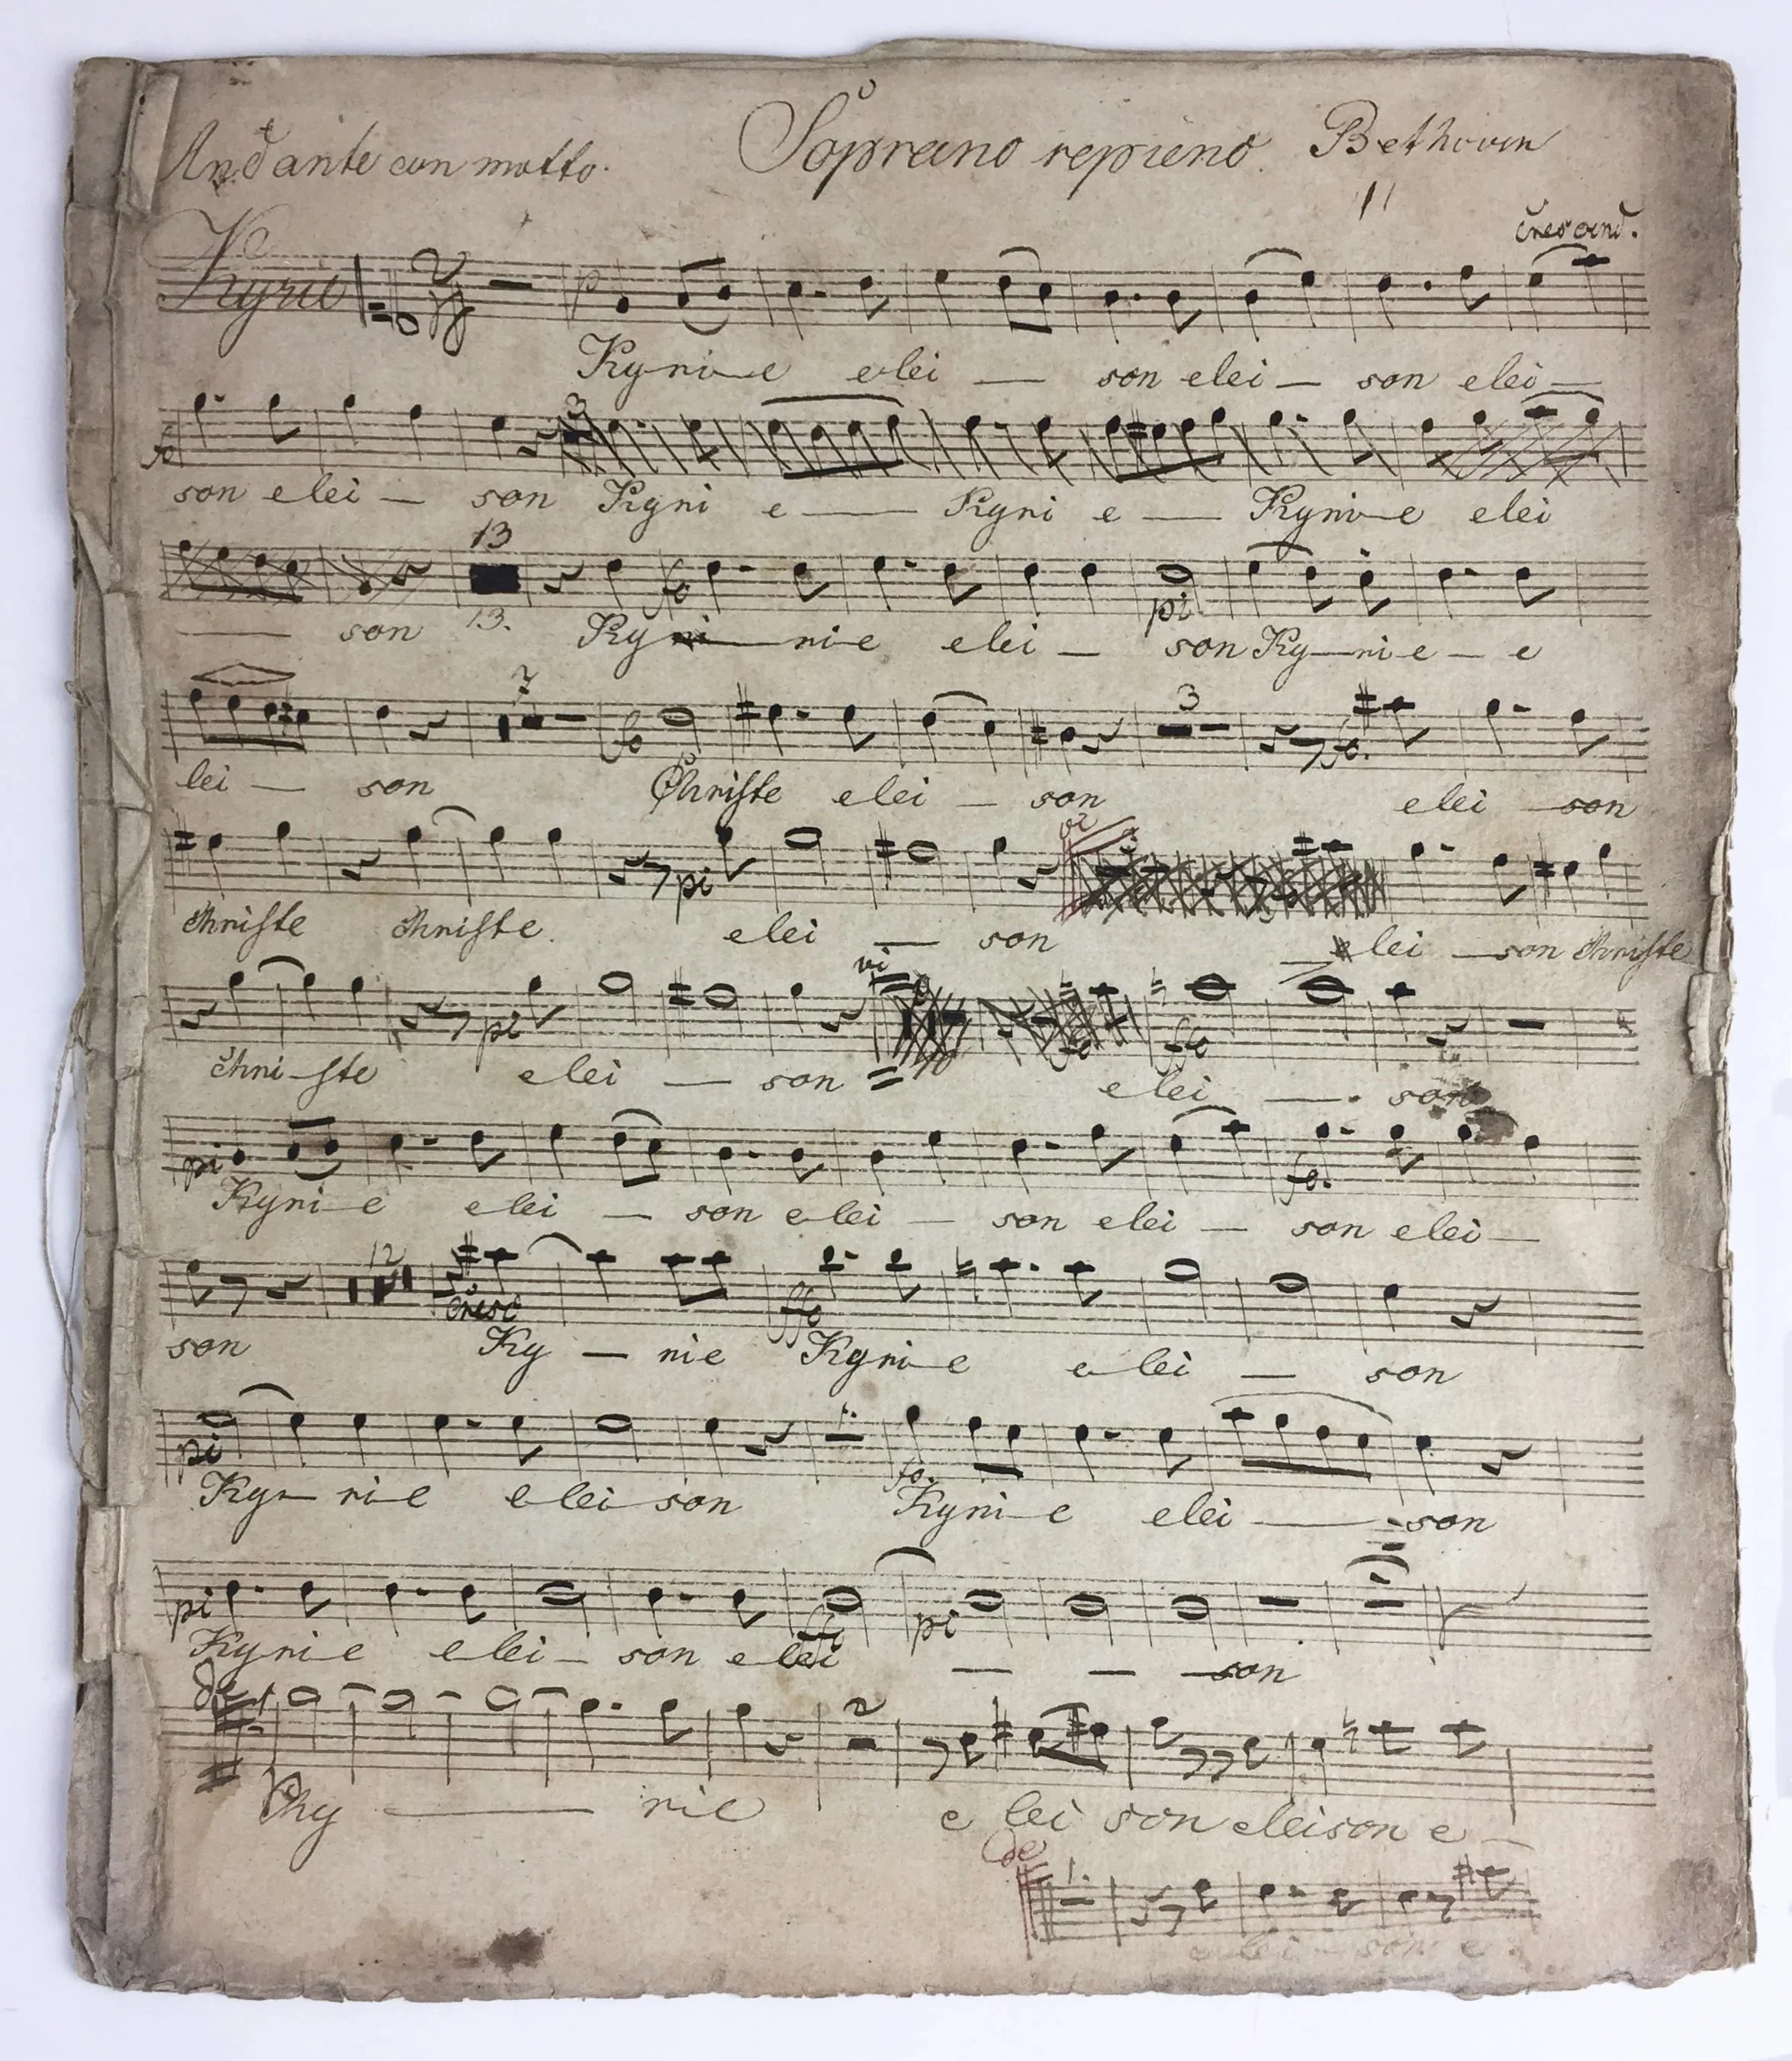 Andante con motto. Soprano repieno. Bethoven
crescend.
Kyrie 2 p
Kyri-e elei — son elei — son elei —
fo 3
son elei — son Kyri e — Kyri e — Kyri-e elei
13 fo pi
— son 13. Ky — ri-e elei — son Ky—ri-e — e
2 fo 3 fo.
lei — son Christe elei — son elei — son
pi vi
Christe Christe. elei — son elei — son Christe
pi vi ffo
Chri-ste elei — son = de elei — son
pi fo.
Kyri-e elei — son elei — son elei — son elei —
12 cresc ffo
son Ky — rie Kyri-e elei — son
pi 1. fo.
Ky — ri-e elei-son Kyri-e elei — son
pi pi
Kyri-e elei — son elei — — — son
de 2
Khy — rie e lei son eleison e —
de 1.
e lei — son e